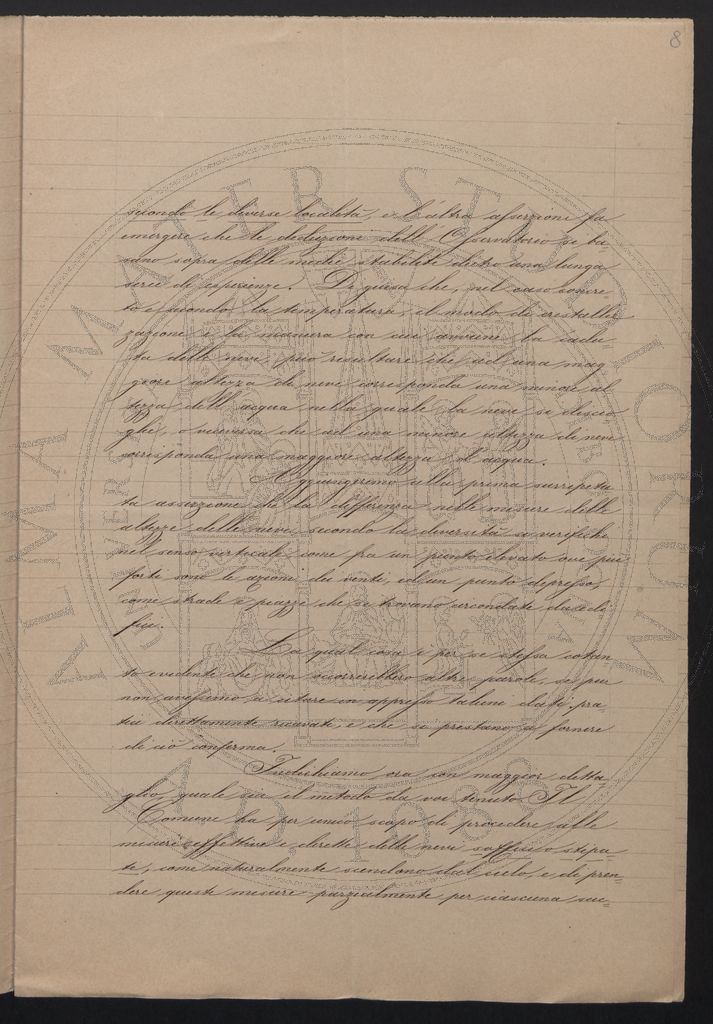 8
secondo le diverse località, e l'altra asserzione fa
emergere che le deduzioni dell'Osservatorio si ba=
sano sopra delle medie stabilite dietro una lunga
serie di esperienze. Di guisa che, nel caso concre=
to e secondo la temperatura, il modo di cristalliz=
zazione e la maniera con cui avviene la cadu=
ta della neve, può risultare che ad una mag=
giore altezza di neve corrisponda una minore al=
tezza dell'acqua nella quale la neve si discio=
glie, o viceversa che ad una minore altezza di neve
corrisponda una maggiore altezza d'acqua.
Aggiungeremo alla prima surripetu=
ta asserzione che la differenza nelle misure delle
altezze delle neve secondo la diversità si verifichi
nel senso verticale come fra un punto elevato ove più
forti sono le azioni dei venti, ed un punto depresso,
come strade e piazze che si trovano circondate da edi=
fizi.
La qual cosa è per se stessa cotan=
to evidente che non occorrerebbero altre parole, se pur
non avessimo a citare in appresso taluni dati pra=
tici direttamente ricavati, e che si prestano a fornire
di ciò conferma.
Indichiamo ora con maggior detta=
glio quale sia il metodo da noi tenuto. Il
Comune ha per unico scopo di procedere alle
misure effettive e dirette delle nevi soffici o stipa=
te, come naturalmente scendono dal cielo, e di pren=
dere queste misure parzialmente per ciascuna cu=
ALMA MATER STUDIORUM
A.D. 1088